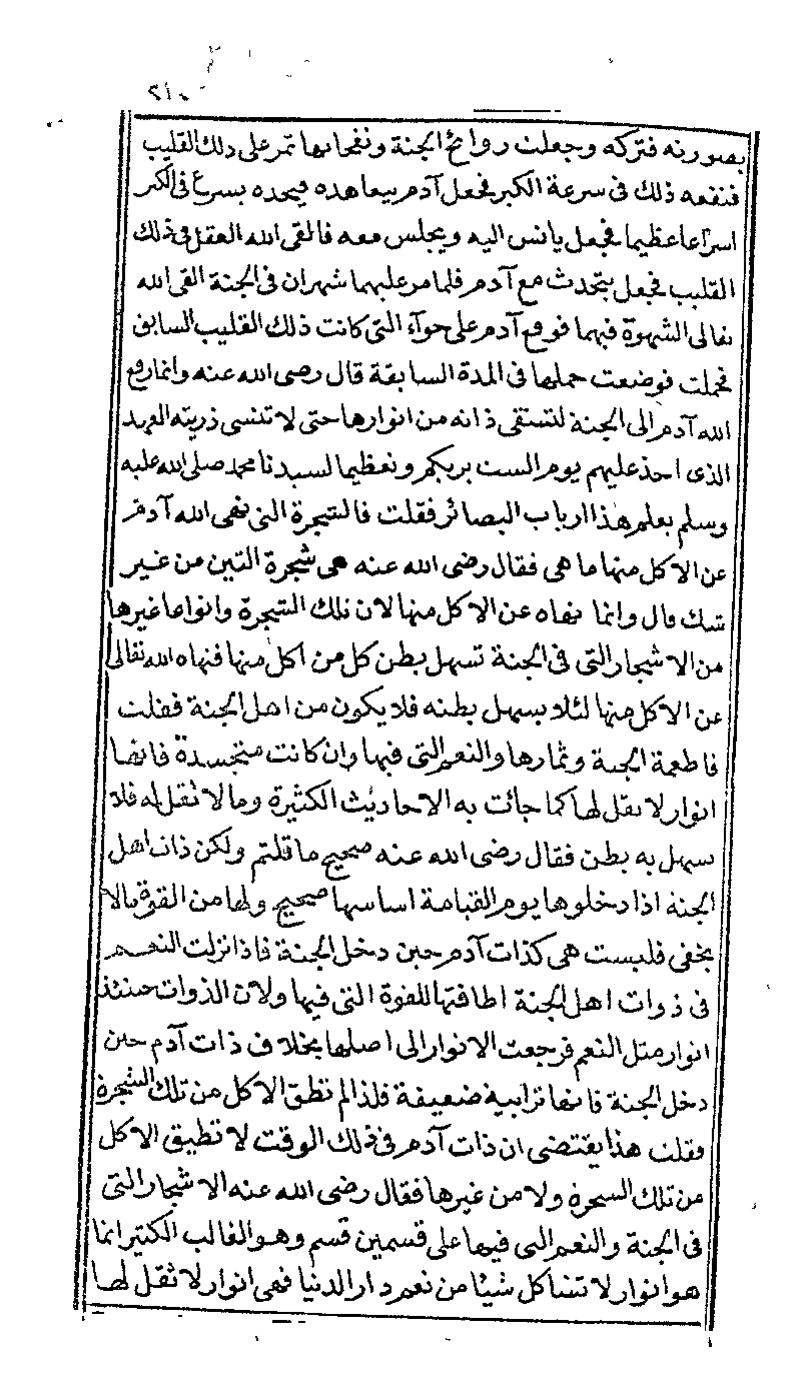 ٢١٠
بصورته فتركه وجعلت روائح الجنة ونفحاتها تمر على ذلك القليب
فنفعه ذلك فى سرعة الكبر فجعل آدم يتعاهده فيجده يسرع فى الكبر
اسراعا عظيما فجعل يانس اليه ويجلس معه فالقى الله العقل فى ذلك
القليب فجعل يتحدث مع آدم فلما مر عليهما شهران فى الجنة القى الله
تعالى الشهوة فيهما فوقع آدم على حوآء التى كانت ذلك القليب السابق
فحملت فوضعت حملها فى المدة السابقة قال رضى الله عنه وانما رفع
الله آدم الى الجنة لتستقى ذاته من انوارها حتى لا تنسى ذريته العهد
الذى اخذ عليهم يوم الست بربكم وتعظيما لسيدنا محمد صلى الله عليه
وسلم يعلم هذا ارباب البصائر فقلت فالشجرة التى نهى الله آدم
عن الاكل منها ما هى فقال رضى الله عنه هى شجرة التين من غير
شك قال وانما نهاه عن الاكل منها لان تلك الشجرة وانواعا غيرها
من الاشجار التى فى الجنة تسهل بطن كل من اكل منها فنهاه الله تعالى
عن الاكل منها لئلا يسهل بطنه فلا يكون من اهل الجنة فقلت
فاطعمة الجنة وثمارها والنعم التى فيها وان كانت متجسدة فانها
انوار لا ثقل لها كما جائت به الاحاديث الكثيرة وما لا ثقل له فلا
يسهل به بطن فقال رضى الله عنه صحيح ما قلتم ولكن ذات اهل
الجنة اذا دخلوها يوم القيامة اساسها صحيح ولها من القوة مالا
يخفى فليست هى كذات آدم حين دخل الجنة فاذا نزلت النعم
فى ذوات اهل الجنة اطاقتها للقوة التى فيها ولان الذوات حينئذ
انوار مثل النعم فرجعت الانوار الى اصلها بخلاف ذات آدم حين
دخل الجنة فانها ترابية ضعيفة فلذا لم تطق الاكل من تلك الشجرة
فقلت هذا يقتضى ان ذات آدم فى ذلك الوقت لا تطيق الاكل
من تلك الشجرة ولا من غيرها فقال رضى الله عنه الاشجار التى
فى الجنة والنعم التى فيها على قسمين قسم وهو الغالب الكثير انما
هو انوار لا تشاكل شيئا من نعم دار الدنيا فهى انوار لا ثقل لها